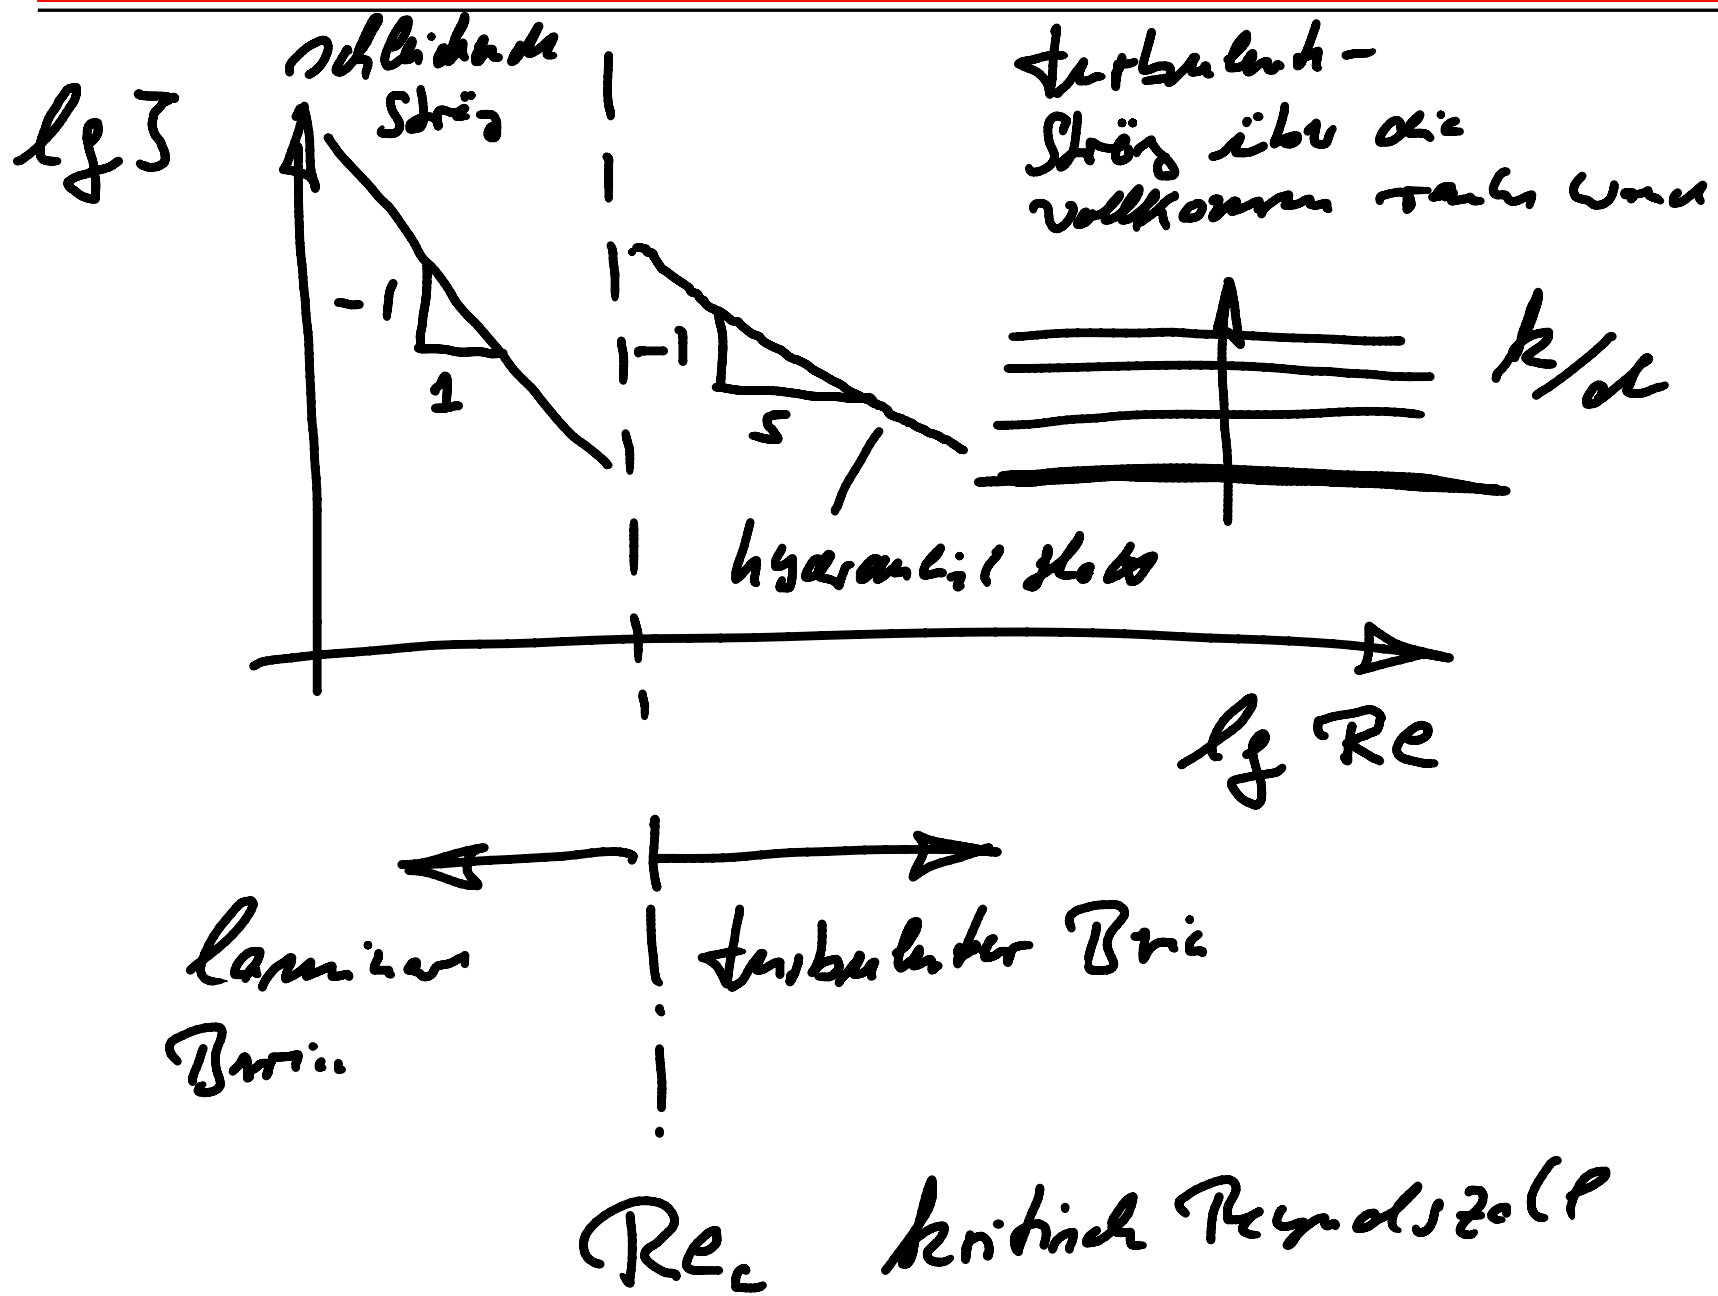 lg ζ
schleichende
Strög
turbulente
Strög über die
vollkommen rauhe Wand
-1
1
-1
5
k/d
hydraulisch glatt
lg Re
laminarer
Bereich
turbulenter Bereich
Re_c
kritische Reynoldszahl